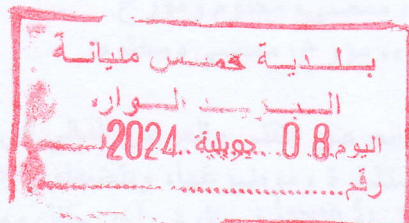 بلدية خميس مليانة
البريد الوارد
اليوم 08 جويلية 2024
رقم